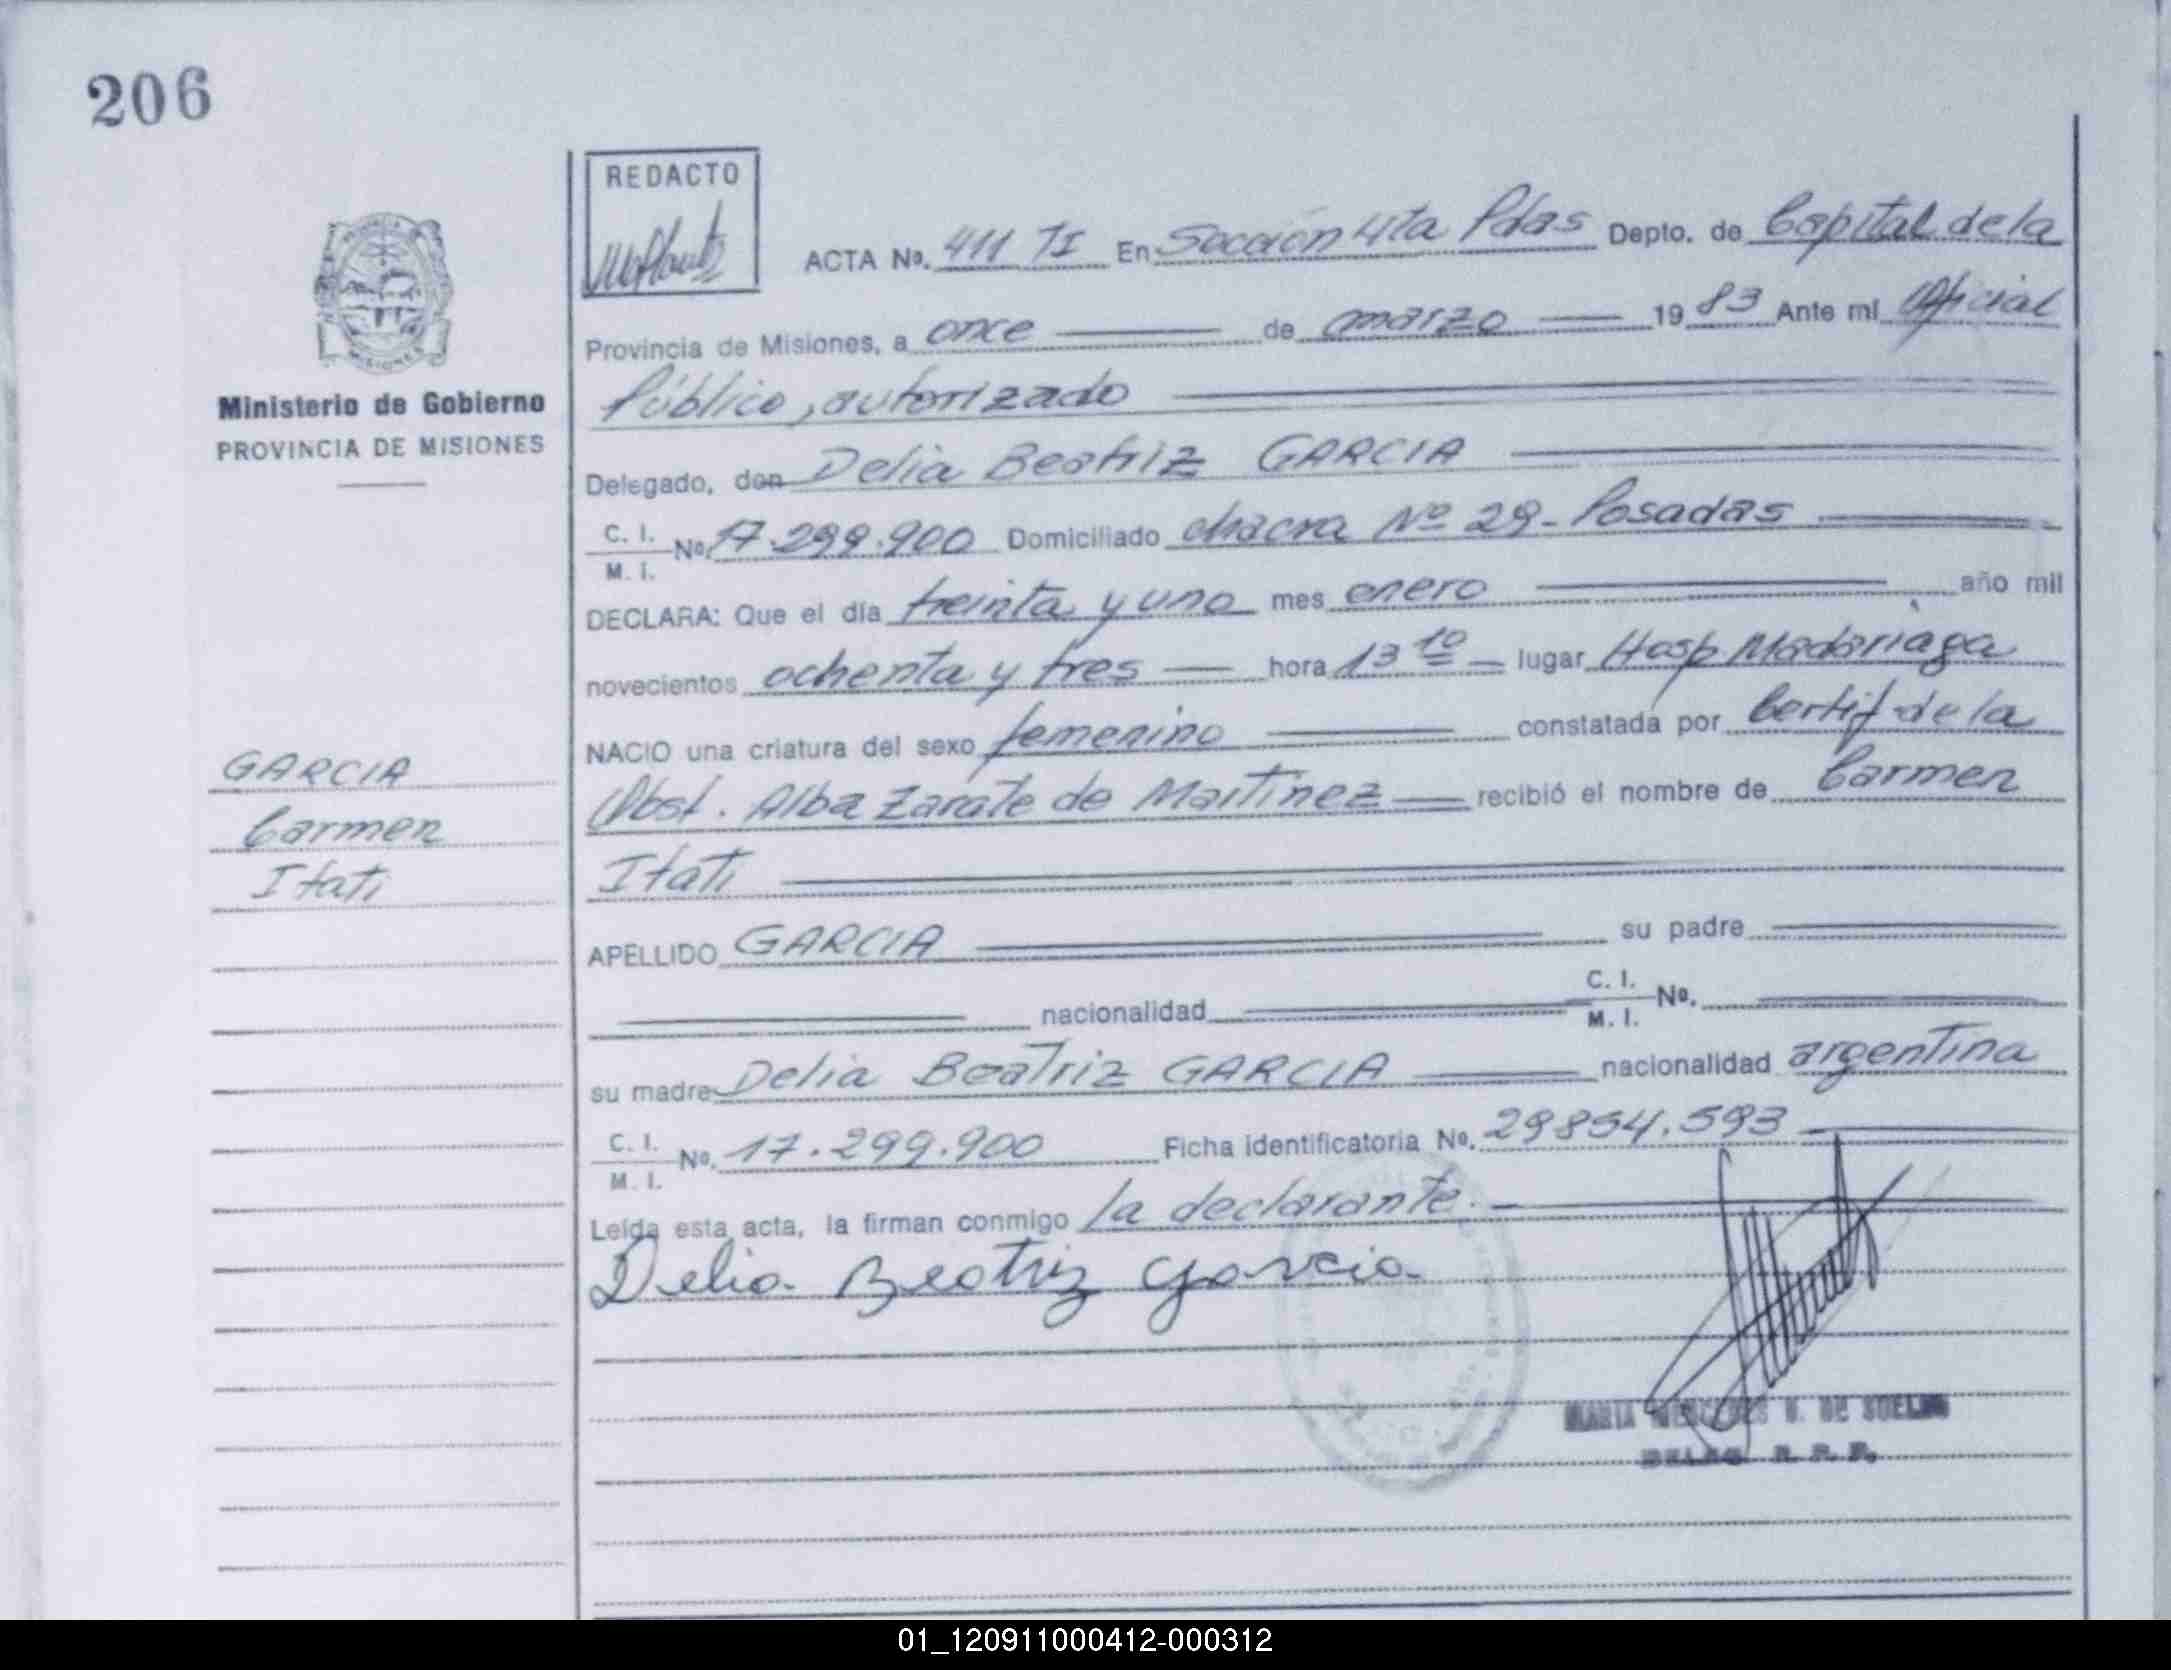 206
REDACTO
ACTA Nº. 411 TI En Sección 4ta Pdas Depto. de Capital de la
Provincia de Misiones, a once de marzo 19 83 Ante mi Oficial
Público, autorizado
Ministerio de Gobierno
PROVINCIA DE MISIONES
Delegado, don Delia Beatriz GARCIA
C. I.
M. I. Nº. 17.299.900 Domiciliado chacra Nº 29 - Posadas
DECLARA: Que el día treinta y uno mes enero año mil
novecientos ochenta y tres hora 13 10 lugar Hosp Madariaga
NACIO una criatura del sexo femenino constatada por Certif de la
Obst. Alba Zarate de Martinez recibió el nombre de Carmen
Itati
GARCIA
Carmen
Itati
APELLIDO GARCIA su padre
nacionalidad C. I.
M. I. Nº.
su madre Delia Beatriz GARCIA nacionalidad argentina
C. I.
M. I. Nº. 17.299.900 Ficha identificatoria Nº. 29854.593
Leída esta acta, la firman conmigo la declarante.
Delia Beatriz Garcia
MARTA DE
DELEG. R. P. P.
01_120911000412-000312